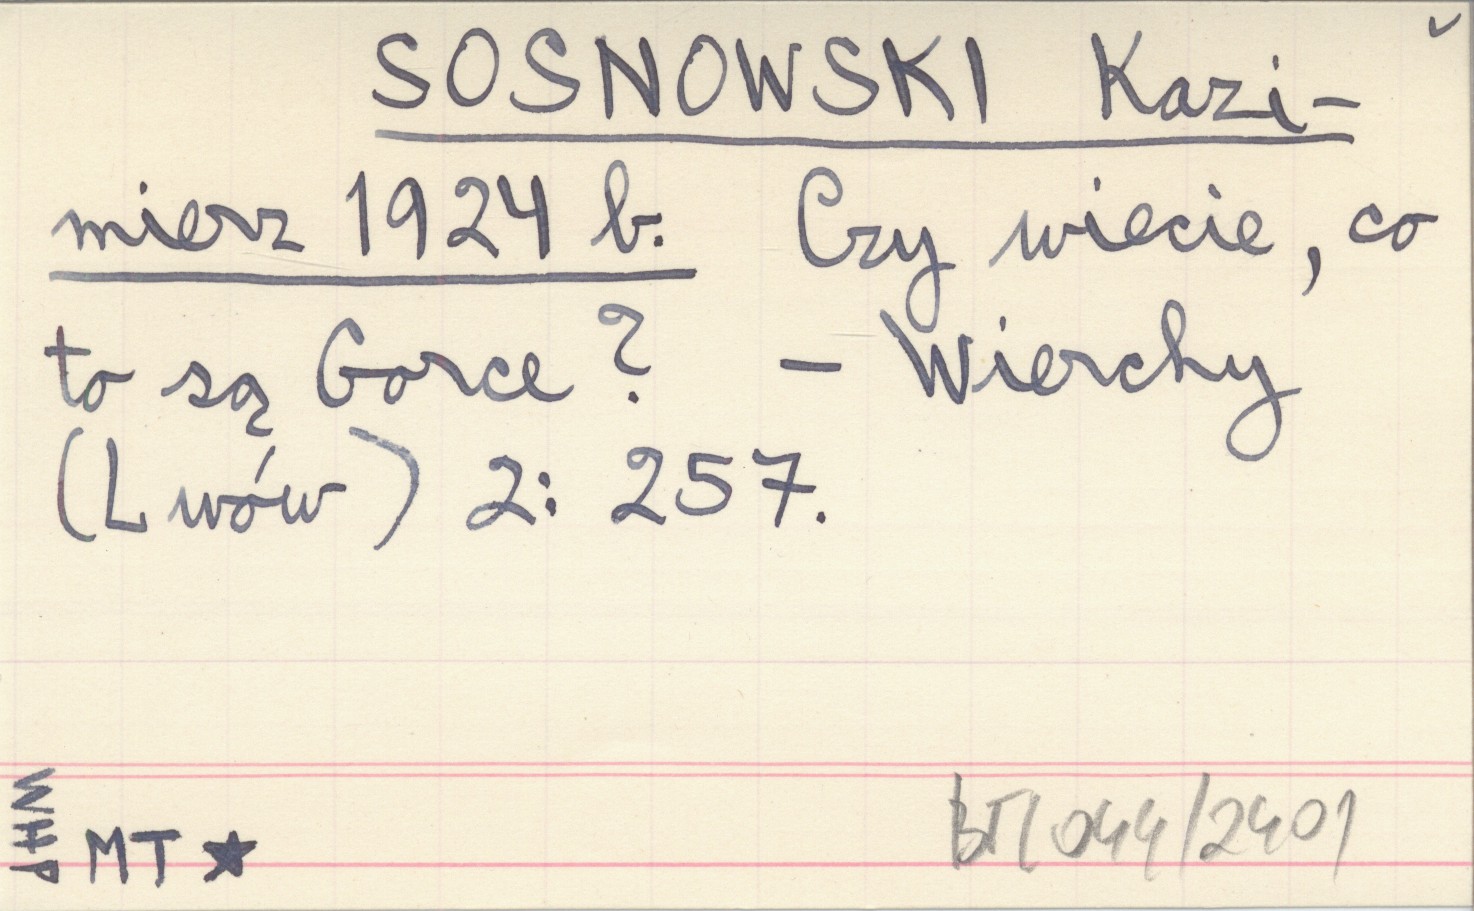 SOSNOWSKI Kazi-
mierz 1924 b. Czy wiecie, co
to są Gorce? - Wierchy
(Lwów) 2: 257.
WHP
MT ★
044/2401